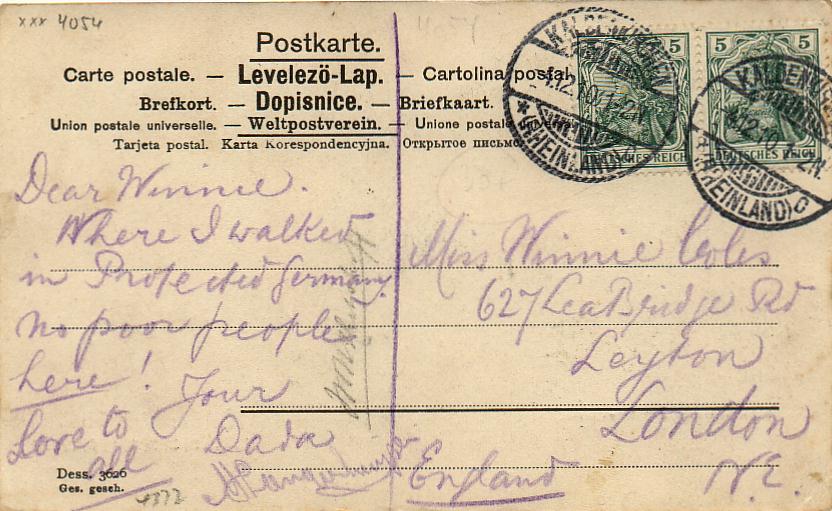 xxx 4054
Postkarte.
Carte postale. — Levelező-Lap. — Cartolina postal
Brefkort. — Dopisnice. — Briefkaart.
Union postale universelle. — Weltpostverein. — Unione postale
Tarjeta postal. Karta Korespondencyjna. Открытое письмо
5
5
DEUTSCHES REICH
DEUTSCHES REICH
KALDENKIRCHEN
(RHEINLAND)
KALDENKIRCHEN
(RHEINLAND)
Dear Winnie.
Where I walked
in Protected Germany.
No poor people
here! Your
Love to Dada
all
Miss Winnie Coles
627 Lea Bridge Rd
Leyton
London
England N.E.
Dess. 3626
Ges. gesch.
4372